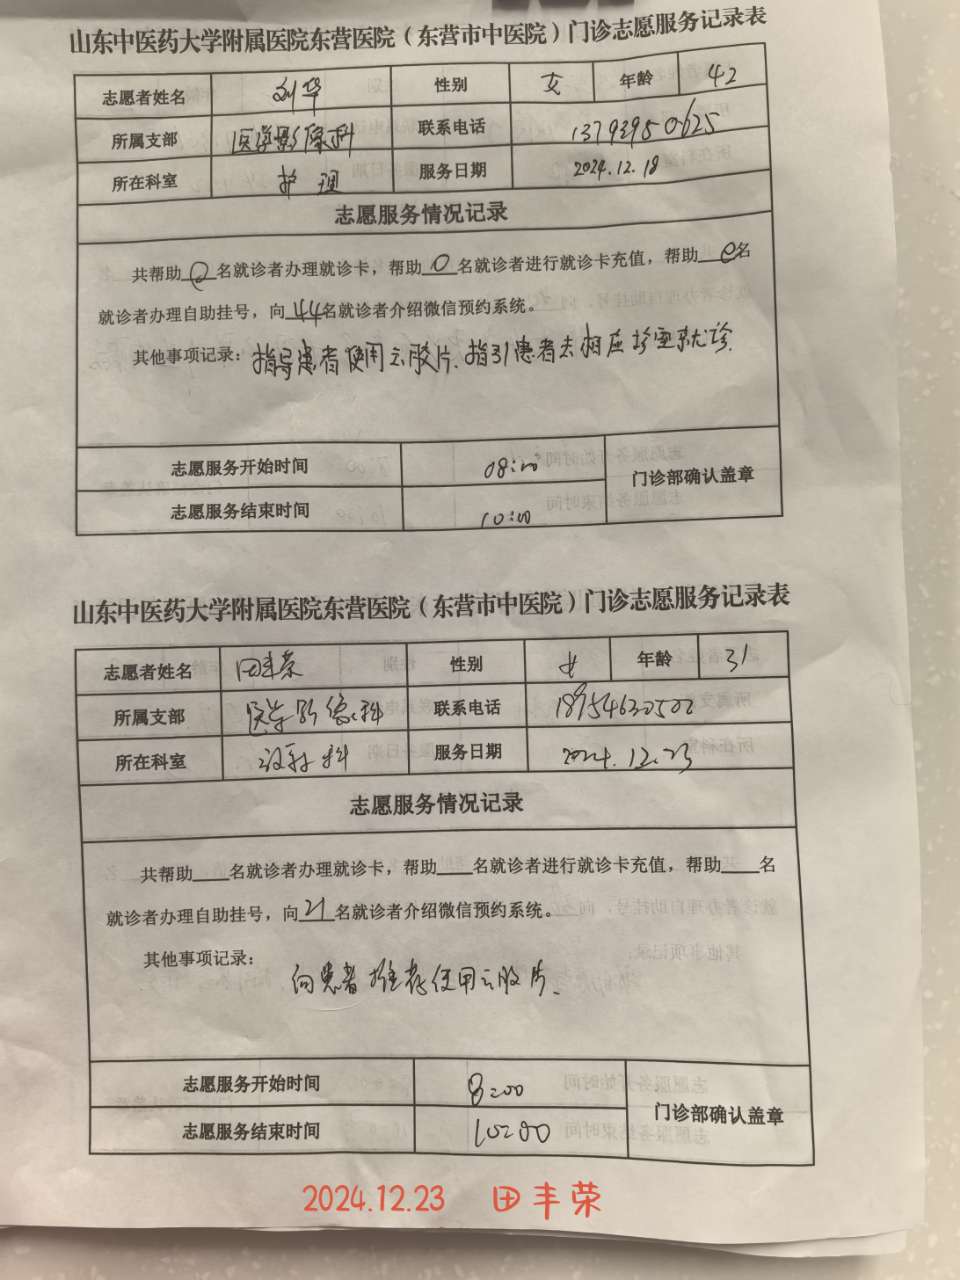 山东中医药大学附属医院东营医院（东营市中医院）门诊志愿服务记录表
志愿者姓名 刘华 性别 女 年龄 42
所属支部 医学影像科 联系电话 13793950625
所在科室 护理 服务日期 2024.12.18
志愿服务情况记录
共帮助 0 名就诊者办理就诊卡，帮助 0 名就诊者进行就诊卡充值，帮助 0 名
就诊者办理自助挂号，向 44 名就诊者介绍微信预约系统。
其他事项记录：指导患者使用云胶片、指引患者去相应诊室就诊.
志愿服务开始时间 08:00 门诊部确认盖章
志愿服务结束时间 10:00
山东中医药大学附属医院东营医院（东营市中医院）门诊志愿服务记录表
志愿者姓名 田丰荣 性别 女 年龄 31
所属支部 医学影像科 联系电话 18954630502
所在科室 放射科 服务日期 2024.12.23
志愿服务情况记录
共帮助____名就诊者办理就诊卡，帮助____名就诊者进行就诊卡充值，帮助____名
就诊者办理自助挂号，向 21 名就诊者介绍微信预约系统。
其他事项记录：向患者推荐使用云胶片.
志愿服务开始时间 8:00 门诊部确认盖章
志愿服务结束时间 10:00
2024.12.23 田丰荣